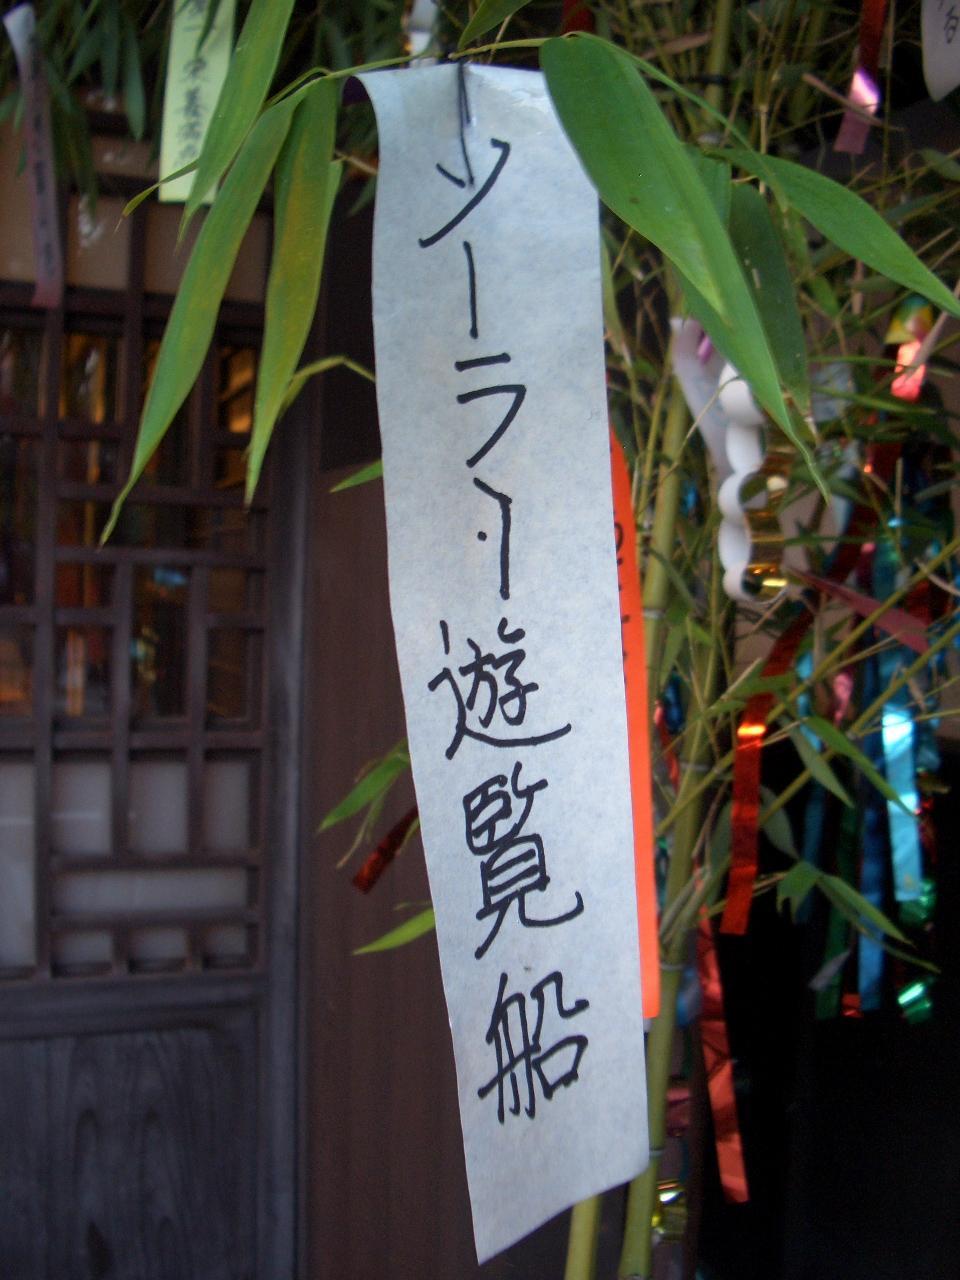 ソーラー遊覧船